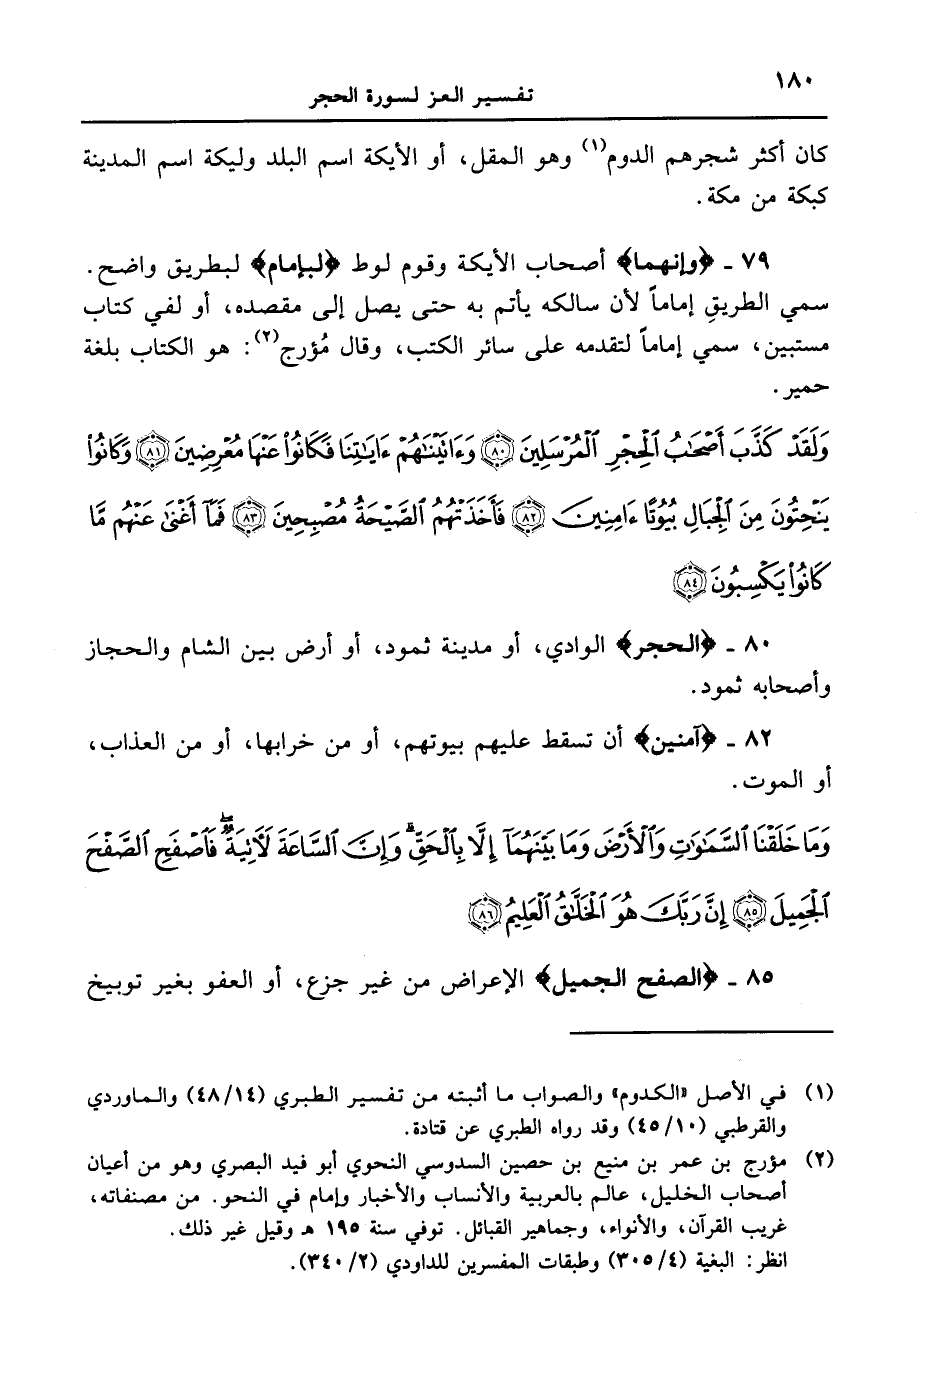 ١٨٠
تفسير العز لسورة الحجر
كان أكثر شجرهم الدوم(١) وهو المقل، أو الأيكة اسم البلد وليكة اسم المدينة
كبكة من مكة.
٧٩ ـ ﴿وإنهما﴾ أصحاب الأيكة وقوم لوط ﴿لبإمام﴾ لبطريق واضح.
سمي الطريق إماماً لأن سالكه يأتم به حتى يصل إلى مقصده، أو لفي كتاب
مستبين، سمي إماماً لتقدمه على سائر الكتب، وقال مُؤرج(٢): هو الكتاب بلغة
حمير.
وَلَقَدْ كَذَّبَ أَصْحَٰبُ ٱلْحِجْرِ ٱلْمُرْسَلِينَ ﴿٨٠﴾ وَءَاتَيْنَٰهُمْ ءَايَٰتِنَا فَكَانُوا۟ عَنْهَا مُعْرِضِينَ ﴿٨١﴾ وَكَانُوا۟
يَنْحِتُونَ مِنَ ٱلْجِبَالِ بُيُوتًا ءَامِنِينَ ﴿٨٢﴾ فَأَخَذَتْهُمُ ٱلصَّيْحَةُ مُصْبِحِينَ ﴿٨٣﴾ فَمَآ أَغْنَىٰ عَنْهُم مَّا
كَانُوا۟ يَكْسِبُونَ ﴿٨٤﴾
٨٠ ـ ﴿الحجر﴾ الوادي، أو مدينة ثمود، أو أرض بين الشام والحجاز
وأصحابه ثمود.
٨٢ ـ ﴿آمنين﴾ أن تسقط عليهم بيوتهم، أو من خرابها، أو من العذاب،
أو الموت.
وَمَا خَلَقْنَا ٱلسَّمَٰوَٰتِ وَٱلْأَرْضَ وَمَا بَيْنَهُمَآ إِلَّا بِٱلْحَقِّ ۗ وَإِنَّ ٱلسَّاعَةَ لَءَاتِيَةٌ ۖ فَٱصْفَحِ ٱلصَّفْحَ
ٱلْجَمِيلَ ﴿٨٥﴾ إِنَّ رَبَّكَ هُوَ ٱلْخَلَّٰقُ ٱلْعَلِيمُ ﴿٨٦﴾
٨٥ ـ ﴿الصفح الجميل﴾ الإعراض من غير جزع، أو العفو بغير توبيخ
(١) في الأصل «الكدوم» والصواب ما أثبته من تفسير الطبري (٤٨/١٤) والماوردي
والقرطبي (٤٥/١٠) وقد رواه الطبري عن قتادة.
(٢) مؤرج بن عمر بن منيع بن حصين السدوسي النحوي أبو فيد البصري وهو من أعيان
أصحاب الخليل، عالم بالعربية والأنساب والأخبار وإمام في النحو. من مصنفاته،
غريب القرآن، والأنواء، وجماهير القبائل. توفي سنة ١٩٥ هـ وقيل غير ذلك.
انظر: البغية (٣٠٥/٤) وطبقات المفسرين للداودي (٣٤٠/٢).